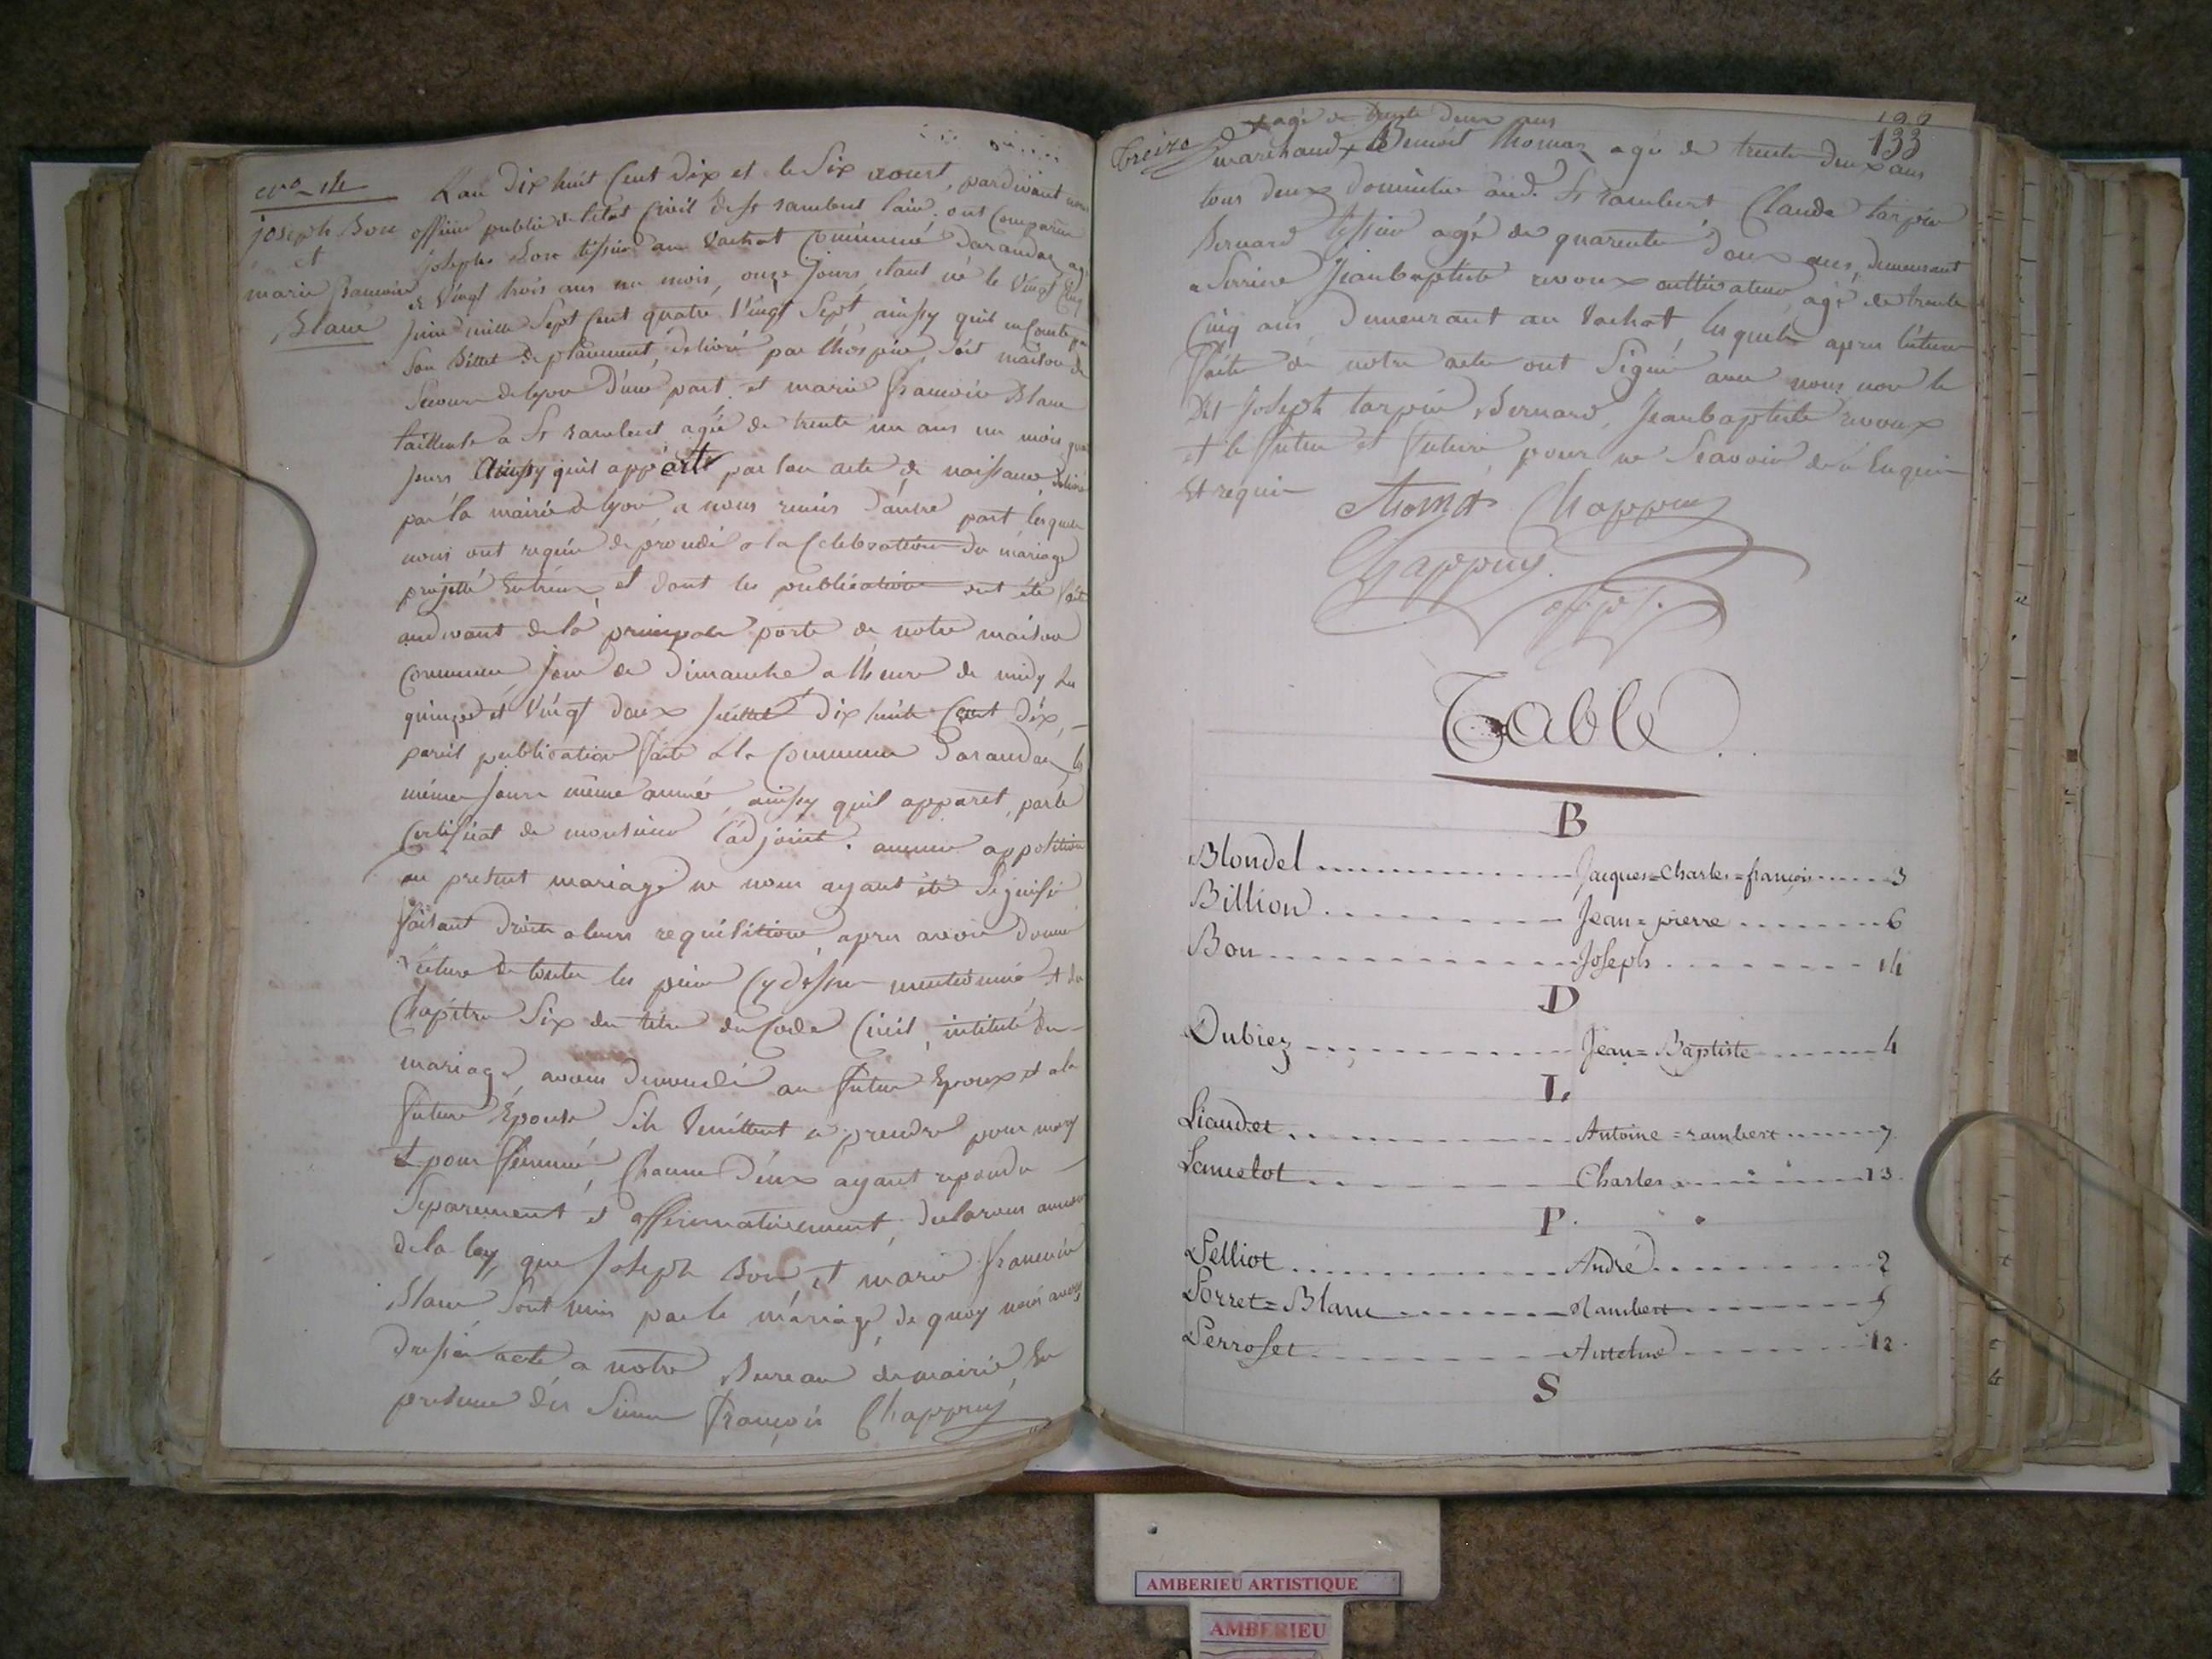 No 14
joseph Bon
et
marie francoise
Blanc
L'an Dix huit Cent Dix et le Six aoust, pardevant nous
officier public de letat Civil de st rambert l'ain. ont Comparu
Josephe Bon tissier au vachat Commune d'arandas agé
de vingt trois ans un mois, onze jours, etant né le vingt Cinq
Juin mille Sept Cent quatre Vingt Sept, ainssy quil en Conste par
Son Billet de placement, delivré par l'hospice, dit maison de
Secours de lyon d'une part. et marie francoise Blanc
tailleuse a St rambert agée de trente un ans un mois
jours Ainssy quil appert par son acte de naissance delivré
par la mairie de lyon a nous remis d'autre part lesquels
nous ont requis de procedé a la Celebration du mariage
projetté Entreux, et dont les publications ont été faites
audevant de la principale porte de notre maison
Commune jour de Dimanche a lheure de midy les
quinze et vingt deux Juillet Dix huit Cent Dix,
pareil publication faite a la Commune Darandas les
mêmes jours même année, ainssy quil apparet, par le
Certificat de monsieur l'adjoint. aucune apposition
au present mariage ne nous ayant été Signifié
faisant droit a leurs requisitions, apres avoir donné
lecture de toutes les pieces Cy dessus mentionné et du
Chapitre Six du titre du Code Civil, intitulé du
mariage, avons demandé au futur Epoux et a la
future Epouse Sils veuillent a prendre pour mary
et pour femme, Chacun d'eux ayant repondu
Separement et affirmativement, declarons au nom
de la loy, que Joseph Bon et marie francoise
Blanc, Sont unis par le mariage, de quoy nous avons
dressé acte a notre Bureau de mairie, En
presence des Sieurs François Chappuy
133
Treize
x agé de trente deux ans
marchand x Benoit Thomaz agé de trente deux ans
tous deux domicilié aud. St rambert, Claude tarpin
Bernard tissier agé de quarente deux ans, demeurant
a Serrieres Jeanbaptiste revoux cultivateur, agé de trente
Cinq ans demeurant au vachat, lesquels apres lecture
faite de notre acte ont Signé avec nous non le
dit Joseph tarpin Bernard, Jeanbaptiste revoux
et le futur et future pour ne Scavoir de ce Enquis
et requis
Thomas Chappuy
Chappuy
Table
B
Blondel Jacques=Charles=françois 3
Billion Jean=pierre 6
Bon Joseph 14
D
Dubiez Jean=Baptiste 4
L
Liaudet Antoine=rambert 7
Lancelot Charles 13
P.
Pelliot André 2
Porret=Blanc Rambert 5
Perroset Antelme 12
S
AMBERIEU ARTISTIQUE
AMBERIEU